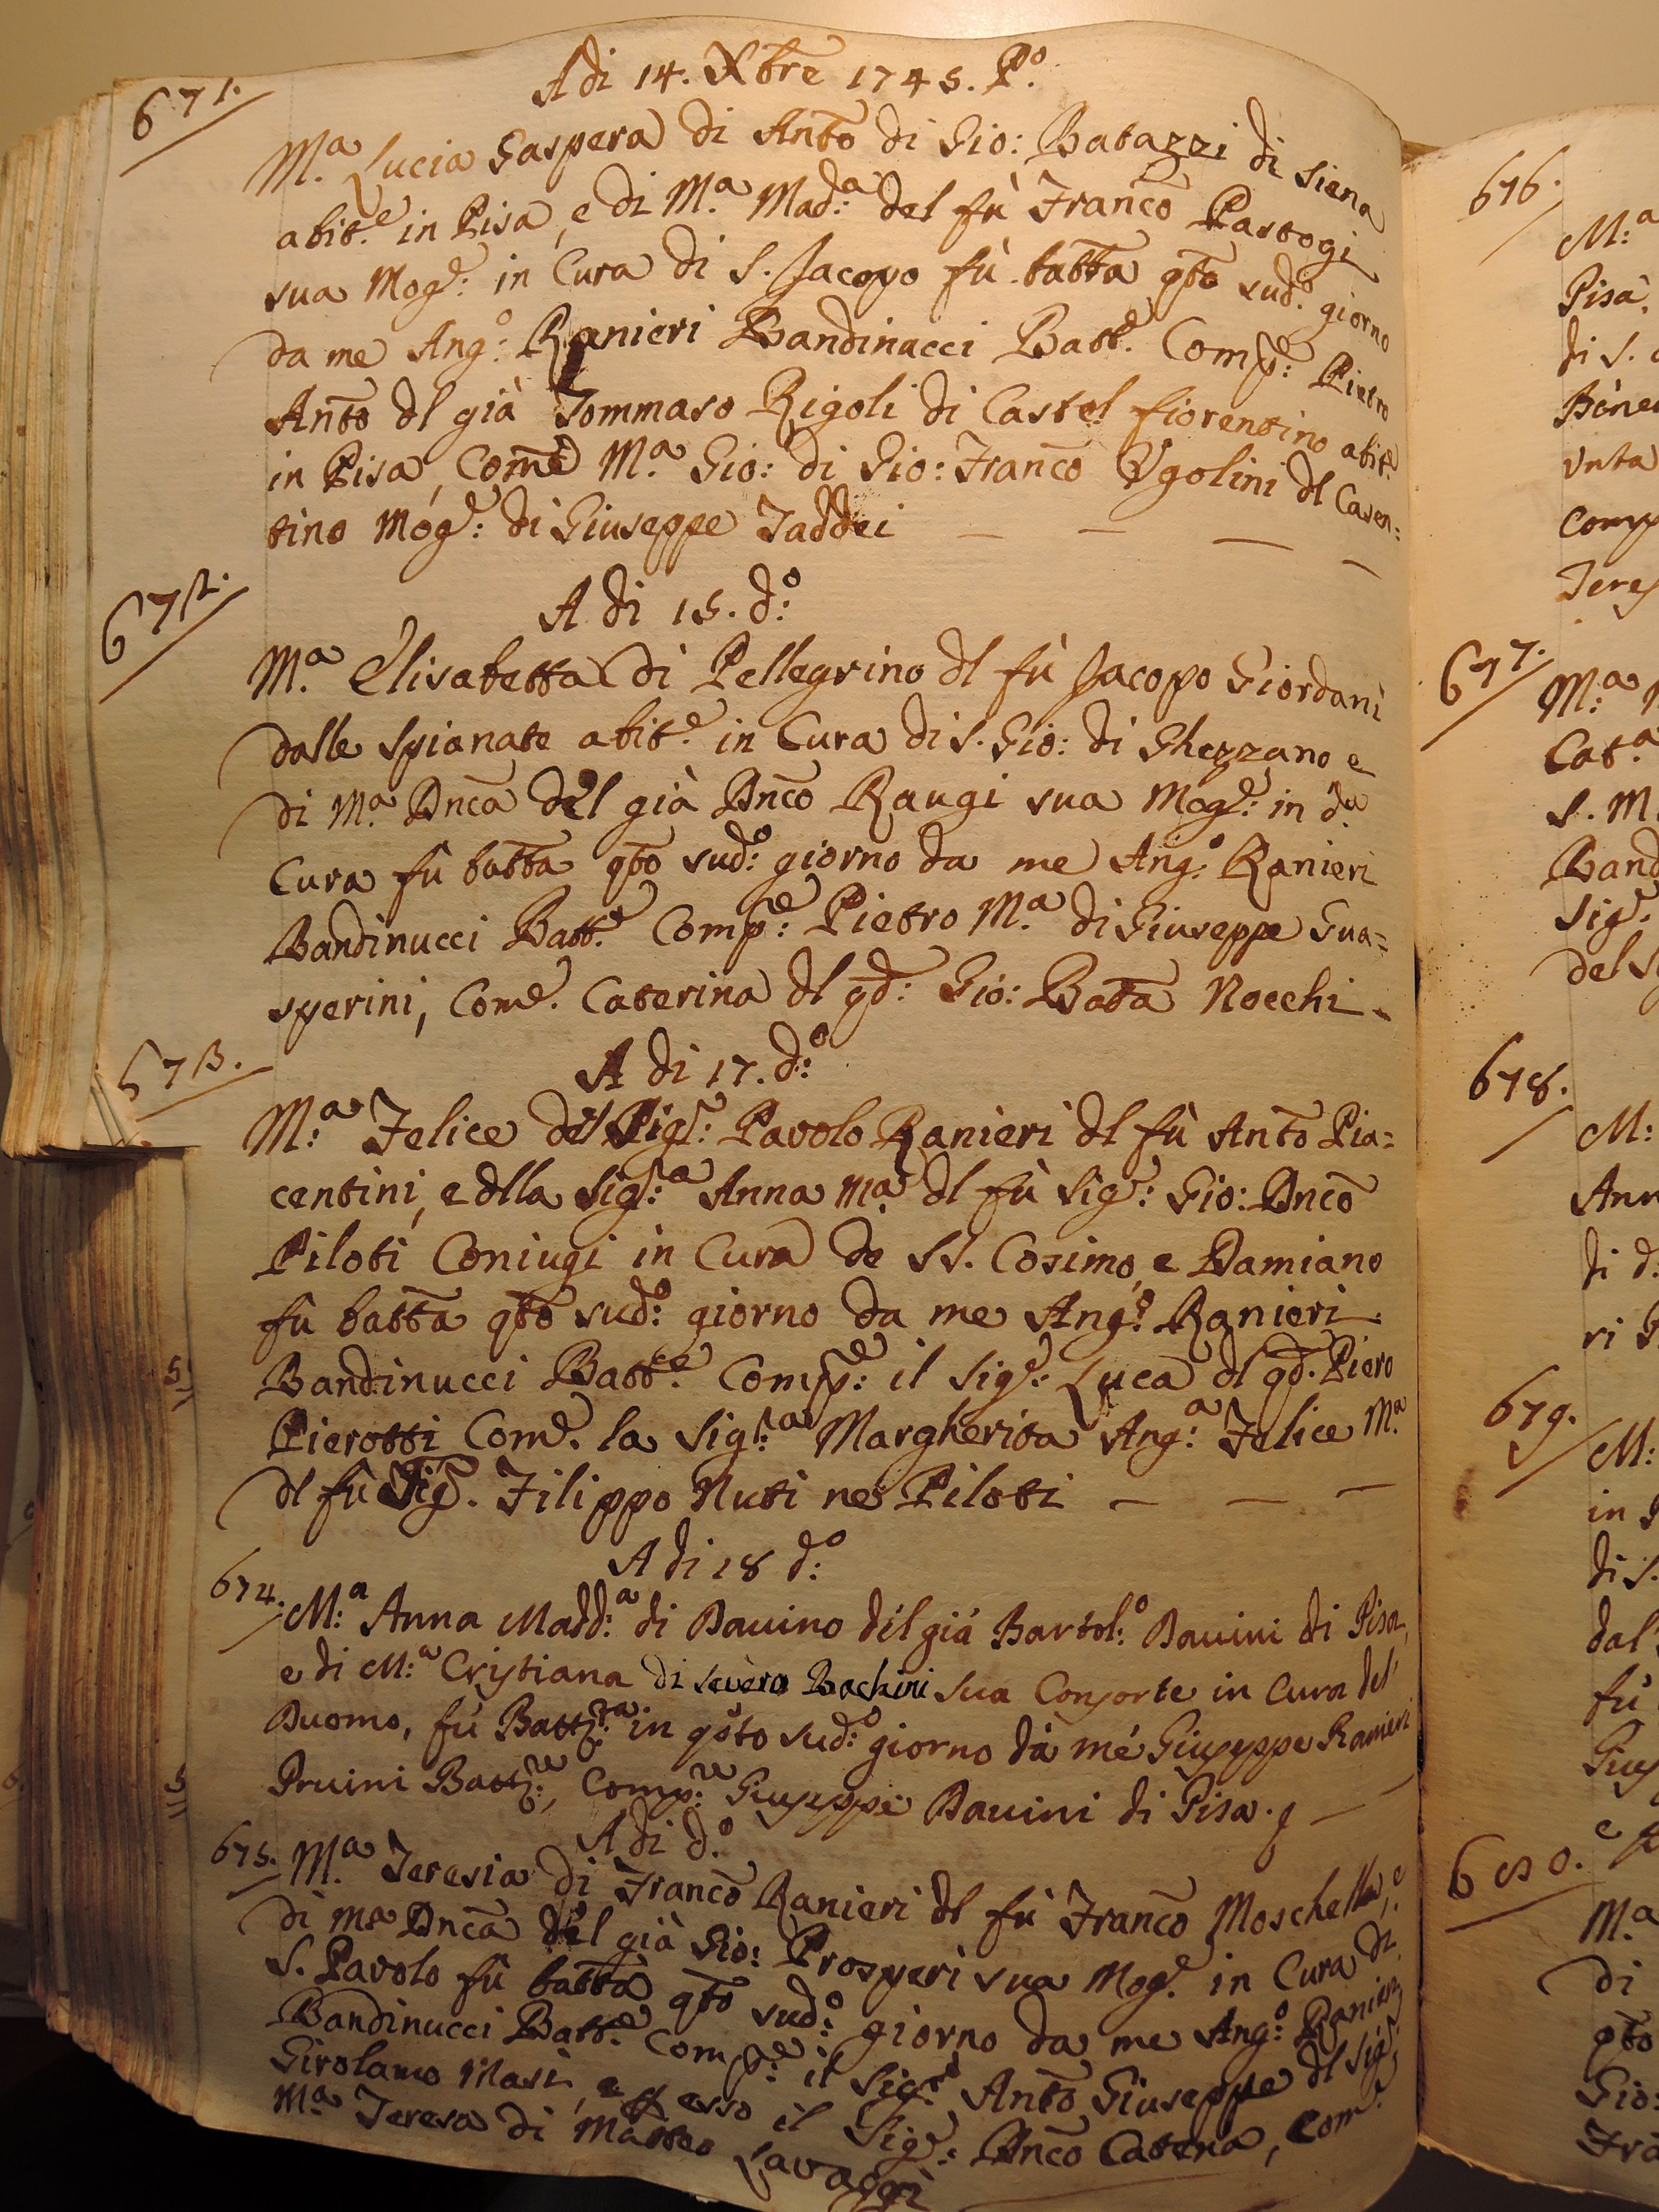 A di 14. Xbre 1745. P.º
671.
M.ª Lucia Gaspera di Anto di Gio: Batazzi di Siena
abit.e in Pisa, e di M.ª Mad.ª del fù Franco Pastogi
sua Mog.e: in Cura di S. Jacopo fù batta qto sud.º giorno
da me Ang.º: Ranieri Bandinucci Batt.e Comp.e: Pietro
Anto dl già Tommaso Rigoli di Castel fiorentino abit.e
in Pisa, Come M.ª Gio: di Gio: Franco Ugolini dl Casen=
tino Mog.e: di Giuseppe Taddei
672.
A di 15. d.º
M.ª Elisabetta di Pellegrino dl fù Jacopo Giordani
dalle Spianate abit.e in Cura di S. Gio: di Ghezzano e
di M.ª Dnca del già Dnco Raugi sua Mog.e: in d.ª
Cura fù batta qto sud.º giorno da me Ang.º Ranieri
Bandinucci Batt.e Comp.e: Pietro M.ª di Giuseppe Gua=
sperini, Com.e Caterina dl qd: Gio: Batta Nocchi
673.
A di 17. d.º
M.ª Felice del Sig.r: Pavolo Ranieri dl fù Anto Pia=
centini, e dlla Sig.ra Anna M.ª dl fù Sig.r: Gio: Dnco
Piloti Coniugi in Cura de SS. Cosimo, e Damiano
fù batta qto sud.º giorno da me Ang.º Ranieri
Bandinucci Batt.e Comp.e: il Sig.r: Luca dl qd. Piero
Pierotti Com.e la Sig.ra Margherita Ang.ª Felice M.ª
dl fù Sig.r Filippo Nuti ne Piloti
A di 18 d.º
674. M.ª Anna Madd.ª di Bavino del già Bartol.º Bavini di Pisa,
e di M.ª Cristiana di Severo Bachini sua Consorte in Cura del
Duomo, fù Battz.ta in qsto sud.º giorno da me Giuseppe Ranieri
Pruini Battz.re, Comp.re Giuseppe Bavini di Pisa.
A di d.º
675. M.ª Teresia di Franco Ranieri dl fù Franco Moschella, e
di M.ª Dnca del già Gio: Prosperi sua Mog.e in Cura di
S. Pavolo fù batta qto sud.º giorno da me Ang.º Ranieri
Bandinucci Batt.e Comp.e: il Sig.r Anto Giuseppe dl Sig.r
Girolamo Masi, e p esso il Sig.r: Dnco Catena, Com.e
M.ª Teresa di Matteo Lavaggi
676.
M.ª
Pisa,
di S.
Bene
unta
Comp
Teres
677.
M.ª
Cat.ª
S. M.
Band
Sig.r
del S
678.
M:
Ann
di d.
ri B
679.
M:
in
di S.
dal
fù
Giu
e
680.
M.ª
di
qto
Gio:
Fra